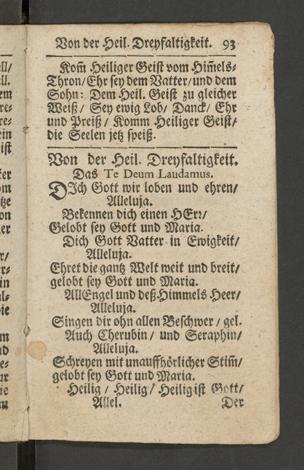 Von der Heil. Dreyfaltigkeit. 93
Kom̃ Heiliger Geist vom Him̃els-
Thron/ Ehr sey dem Vatter/ und dem
Sohn: Dem Heil. Geist zu gleicher
Weiß/ Sey ewig Lob/ Danck/ Ehr
und Preiß/ Komm Heiliger Geist/
die Seelen jetz speiß.
Von der Heil. Dreyfaltigkeit.
Das Te Deum Laudamus.
DIch Gott wir loben und ehren/
Alleluja.
Bekennen dich einen HErr/
Gelobt sey Gott und Maria.
Dich Gott Vatter in Ewigkeit/
Alleluja.
Ehret die gantz Welt weit und breit/
gelobt sey Gott und Maria.
All Engel und deß Himmels Heer/
Alleluja.
Singen dir ohn allen Beschwer/ gel.
Auch Cherubin/ und Seraphin/
Alleluja.
Schreyen mit unauffhörlicher Stim̃/
gelobt sey Gott und Maria.
Heilig/ Heilig/ Heilig ist Gott/
Allel. Der